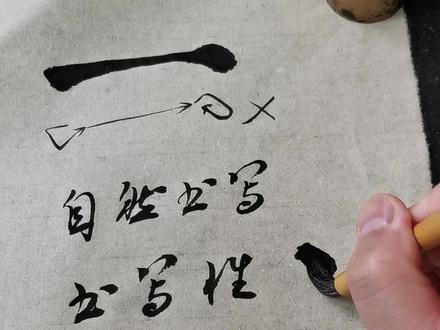 一
×
自然书写
书写性